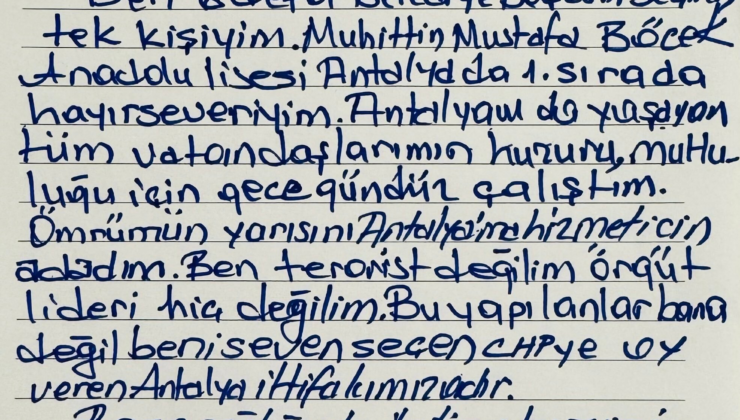 tek kişiyim. Muhittin Mustafa Böcek
Anadolu lisesi Antalyada 1. sırada
hayırseveriyim. Antalyam da yaşayan
tüm vatandaşlarımın huzuru, mutlu-
luğu için gece gündüz çalıştım.
Ömrümün yarısını Antalya'ma hizmet için
adadım. Ben terörist değilim örgüt
lideri hiç değilim. Bu yapılanlar bana
değil beni seven seçen CHP ye oy
veren Antalya ittifakımızadır.